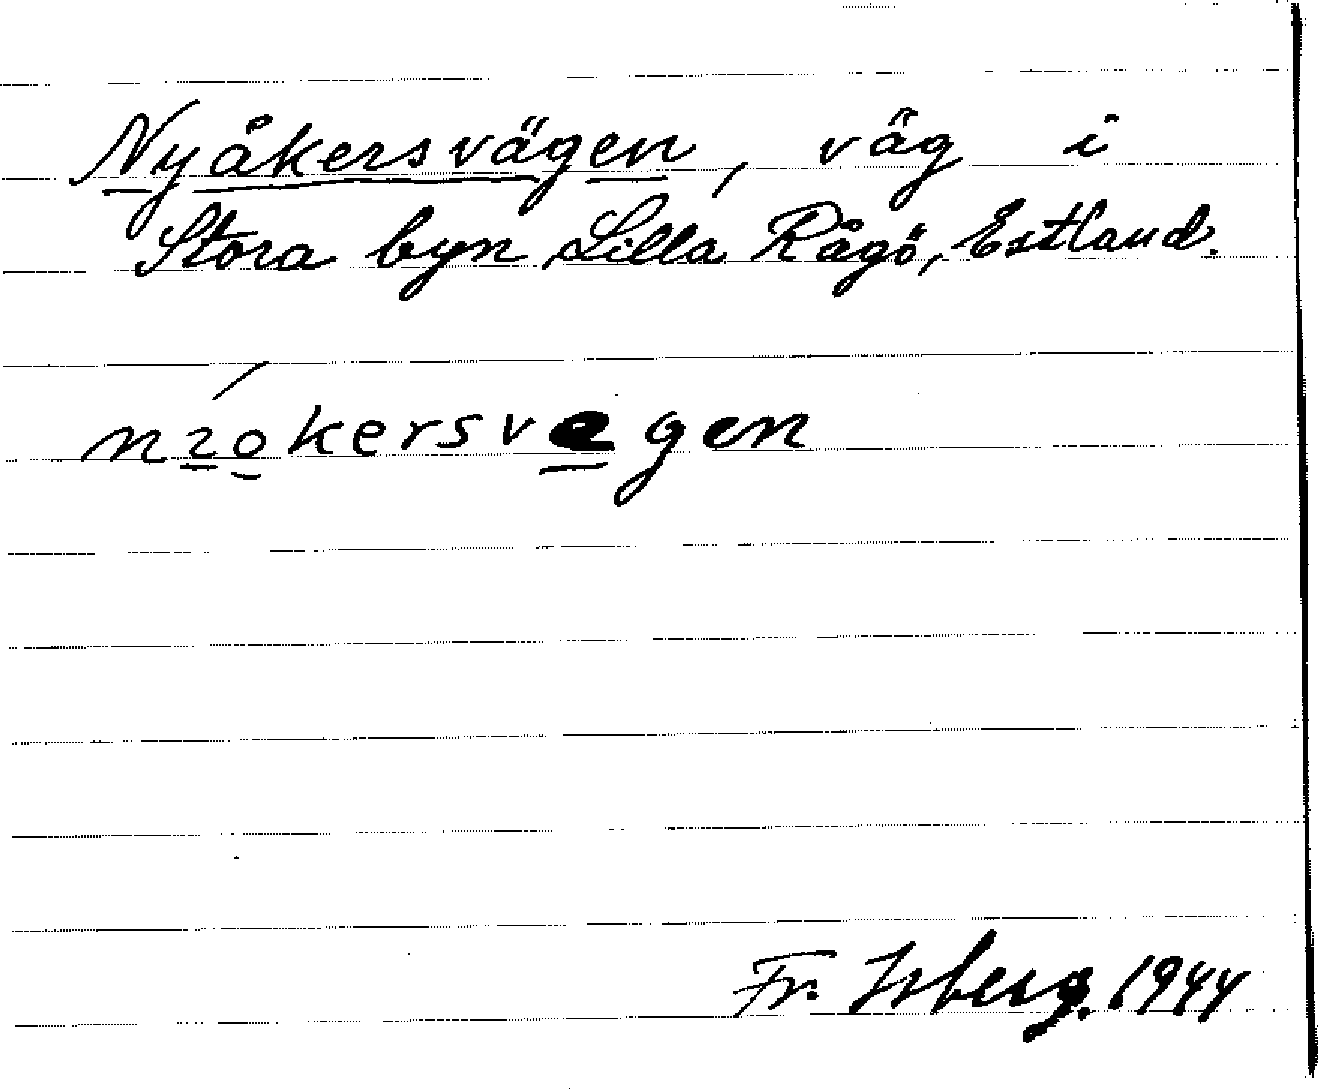 Nyåkersvägen, väg i
Stora byn, Lilla Rågö, Estland.
nıo̮kersve̲gen
Fr. Isberg. 1944